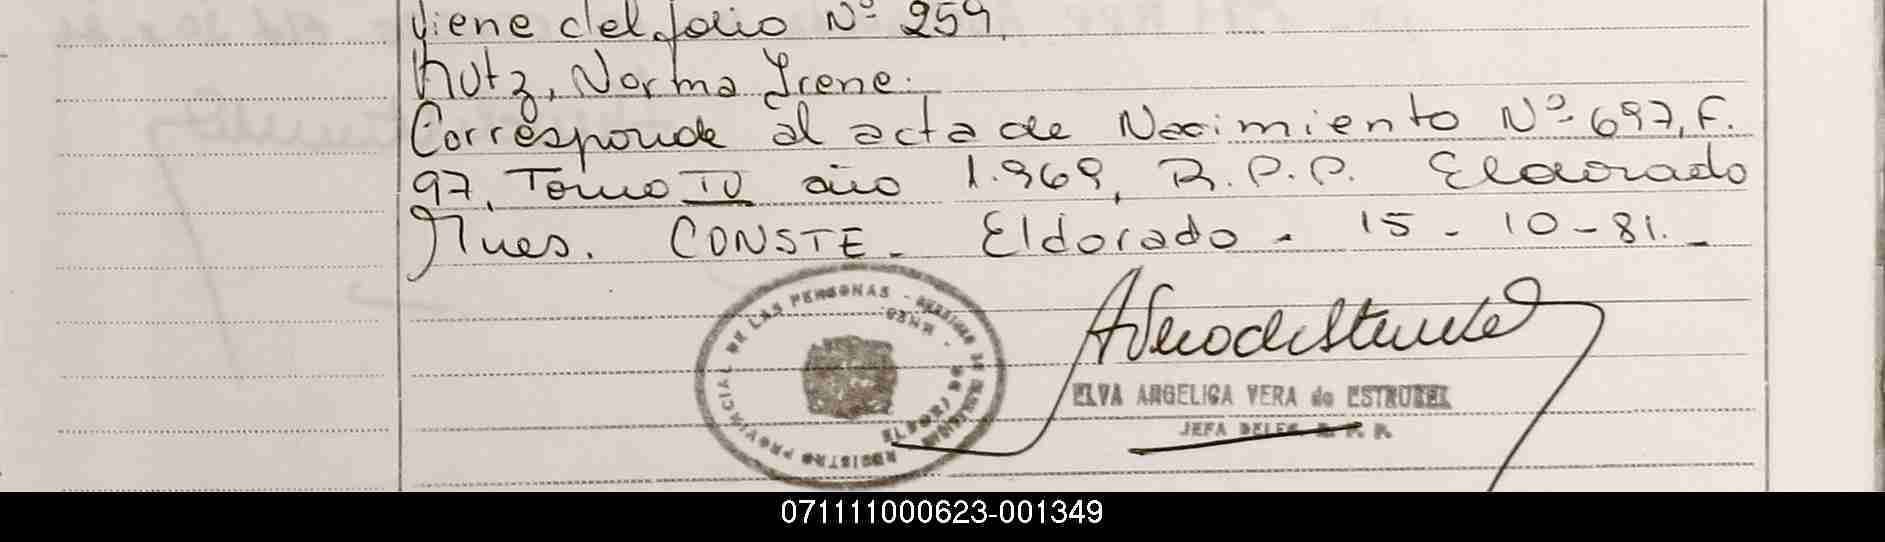 Viene del folio Nº 259.
Kutz, Norma Irene.
Corresponde al acta de Nacimiento Nº 697, F.
97, Tomo IV año 1.969, R.P.P. Eldorado
Mnes. CONSTE. Eldorado - 15 - 10 - 81. -
REGISTRO PROVINCIAL DE LAS PERSONAS -
ELVA ANGELICA VERA de ESTRUBEL
JEFA DELEG. R. P. P.
071111000623-001349